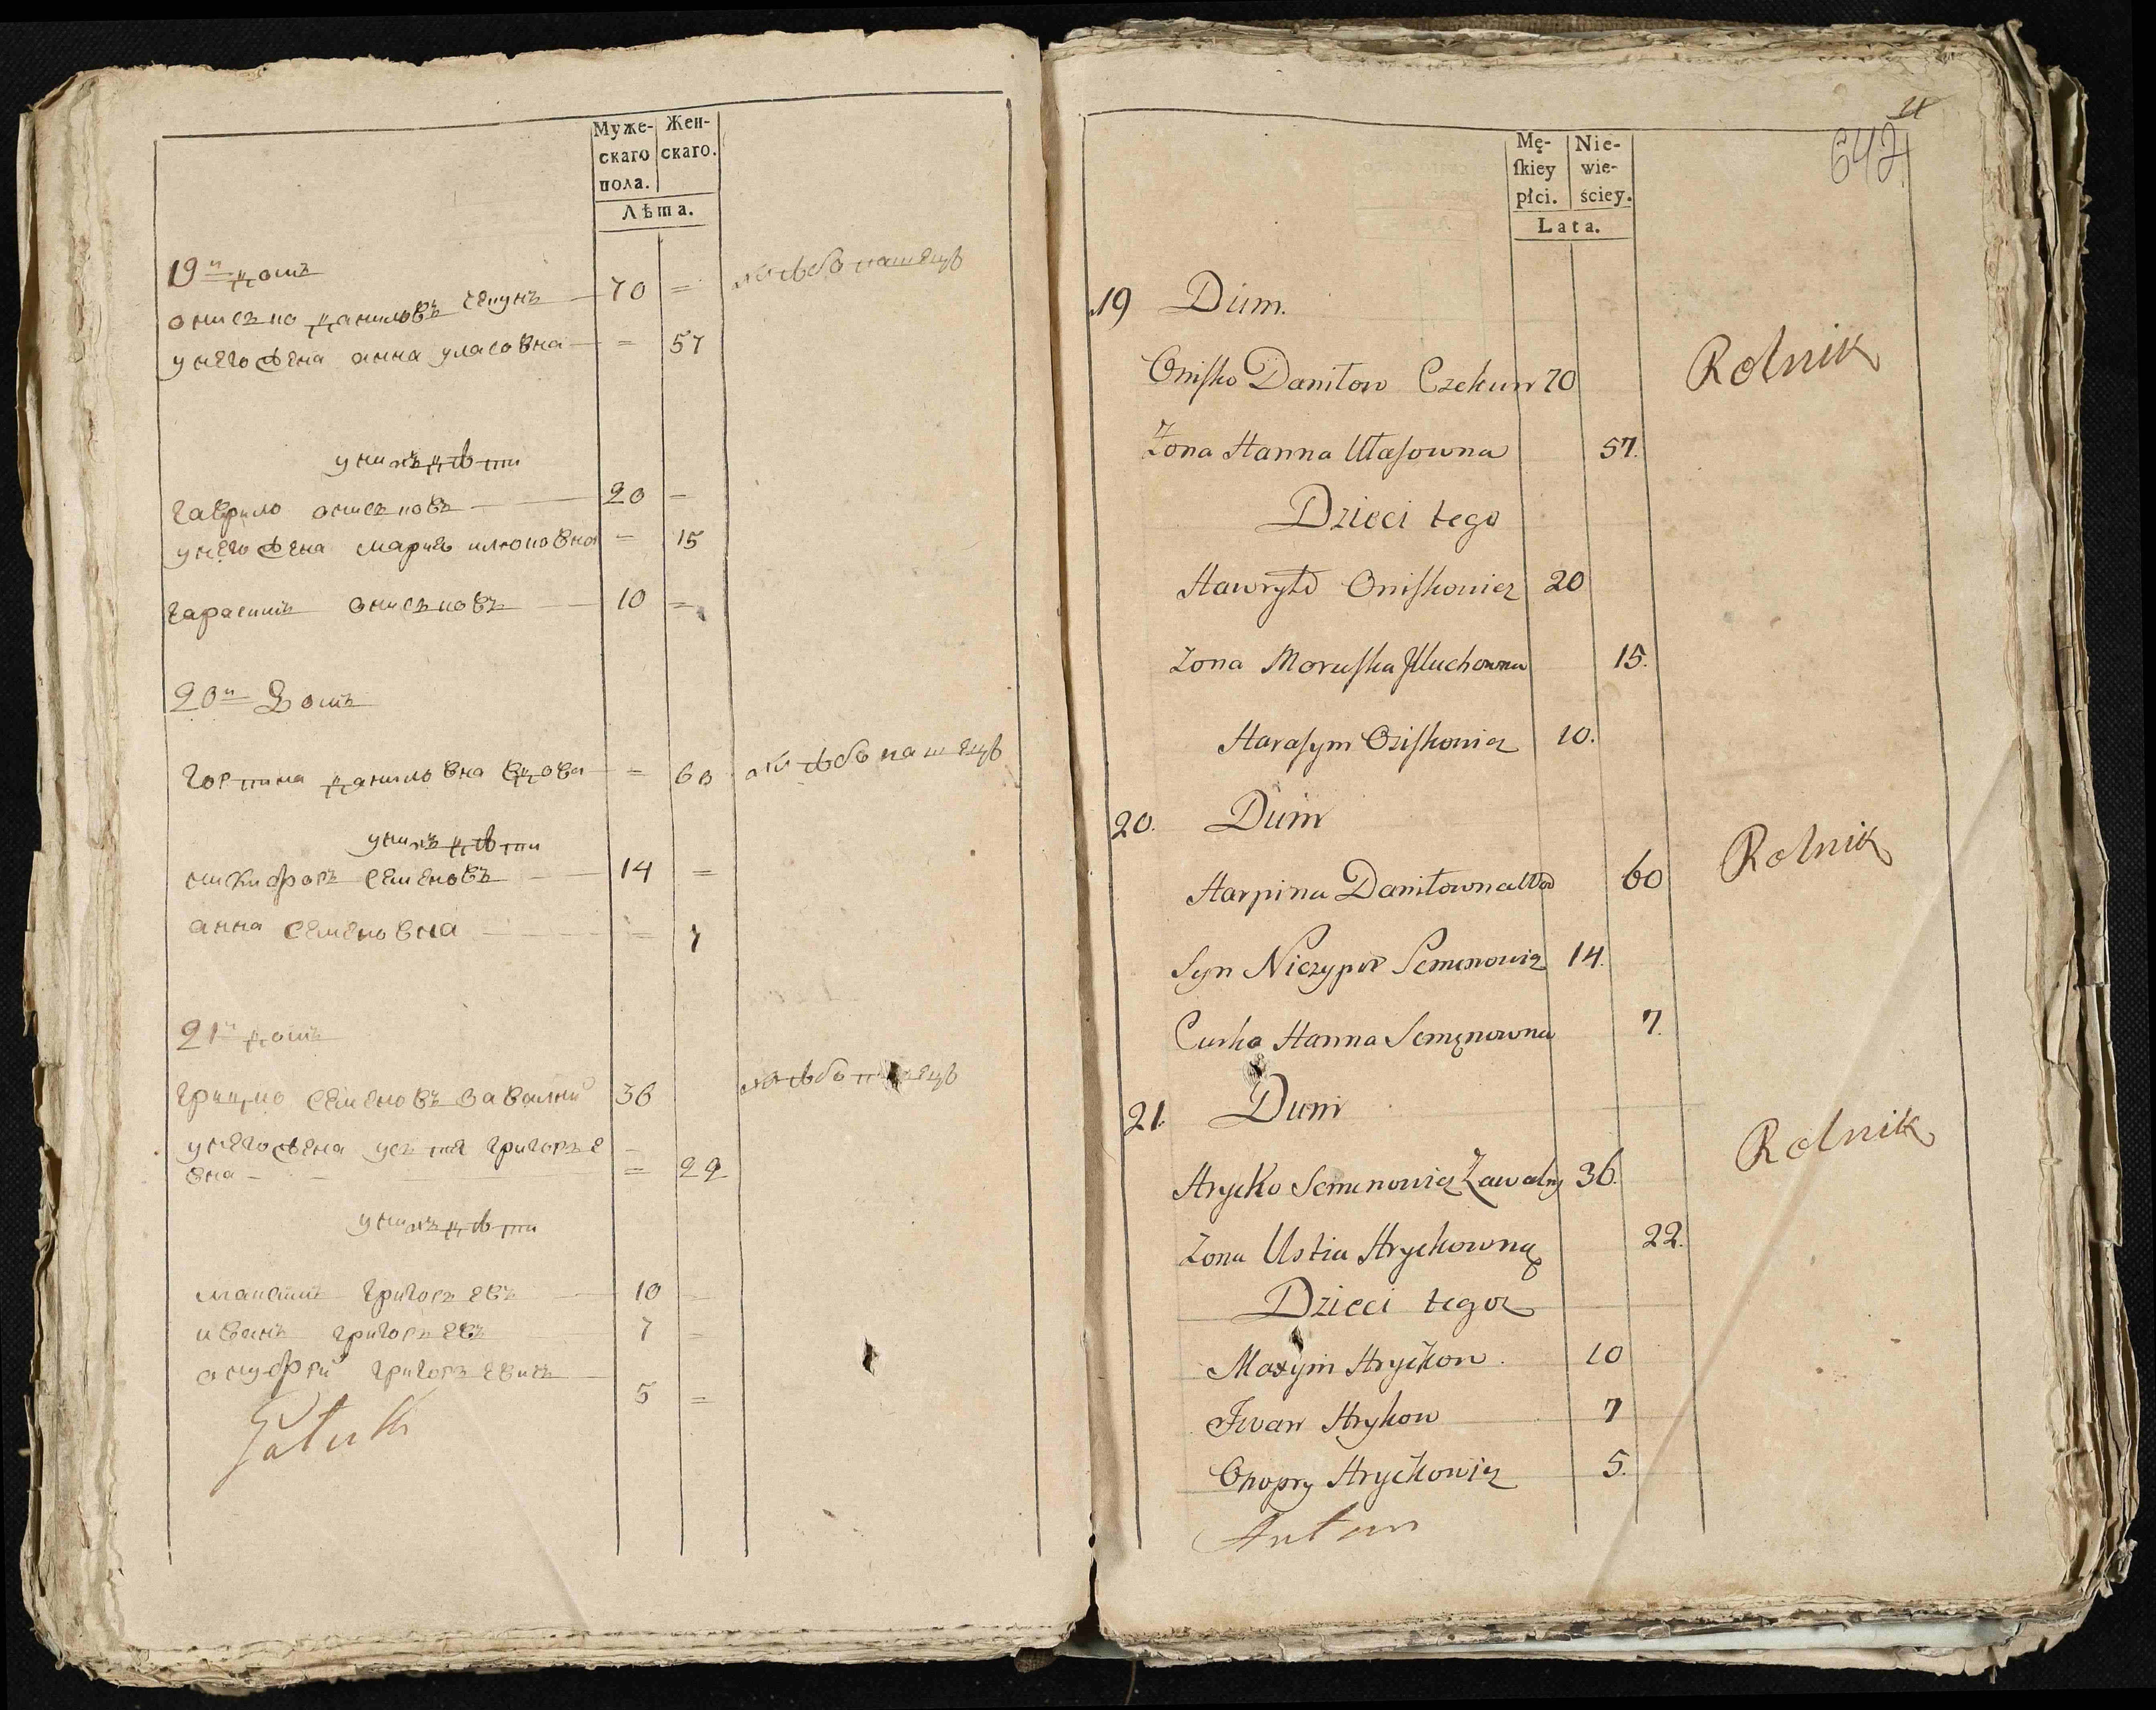 Муже-
скаго
пола.
Жен-
скаго.
Лѣта.
19й домъ
онисько даниловъ чекунъ — 70 = хлѣбопашецъ
унего жена анна уласовна — = 57
унихъ дѣти
гаврилоониськовъ — 20 —
унего жена мария илюховна = 15
гарасимъ ониськовъ — 10 =
20й Домъ
горпина даниловна вдова — = 60 хлѣбопашецъ
унихъ дѣти
никифоръ семеновъ — 14 =
анна семеновна — = 7
21й домъ
грицко семеновъ завалний 36 хлѣбопашецъ
унего жена устя григорье
вна — = 22
унихъ дѣти
максимъ григорьевъ — 10 —
иванъ григорьевъ 7 =
онуфрій григорьевичъ —
5 =
642
Mę-
ſkiey
płci.
Nie-
wie-
ściey.
Lata.
19 Dum.
Oniſko Daniłow Czekun 70 Rolnik
Zona Hanna Ułaſowna 57.
Dzieci tego
Hawryło Oniſkowicz 20
Zona Maruſka Jluchowna 15.
Haraſym Oniſkowicz 10.
20. Dum
Harpina Daniłowna Wd 60 Rolnik
Syn Niczypor Semenowicz 14.
Curka Hanna Semenowna 7.
21. Dum
Hrycko Semenowicz Zawalny 36. Rolnik
Zona Ustia Hryckowna 22.
Dzieci tegoz
Maxym Hryckow. 10
Jwan Hrykow 7
Onopry Hryckowicz 5.